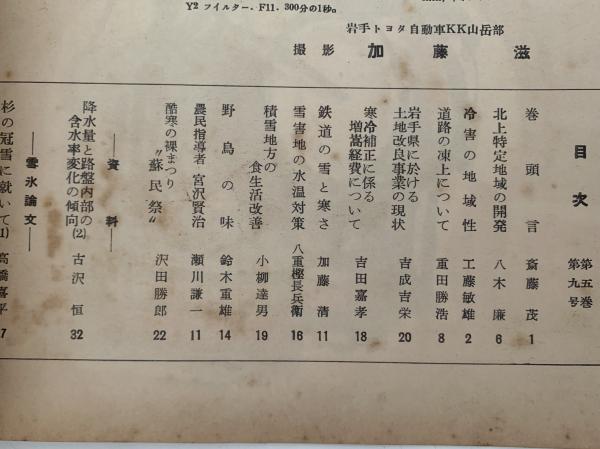 Y2 フイルター. F11. 300分の1秒。
岩手トヨタ自動車KK山岳部
撮影 加藤 滋
目次 第五巻 第九号
巻頭言 斎藤茂 1
北上特定地域の開発 八木廉 6
冷害の地域性 工藤敏雄 2
道路の凍上について 重田勝浩 8
岩手県に於ける
土地改良事業の現状 吉成吉栄 20
寒冷補正に係る
増嵩経費について 吉田嘉孝 18
鉄道の雪と寒さ 加藤清 11
雪害地の水温対策 八重樫長兵衛 16
積雪地方の
食生活改善 小柳達男 19
野鳥の味 鈴木重雄 14
農民指導者 宮沢賢治 瀬川謙一 11
酷寒の裸まつり
〝蘇民祭〟 沢田勝郎 22
―資料―
降水量と路盤内部の
含水率変化の傾向(2) 古沢恒 32
―雪氷論文―
杉の冠雪に就いて(1) 高橋喜平 7